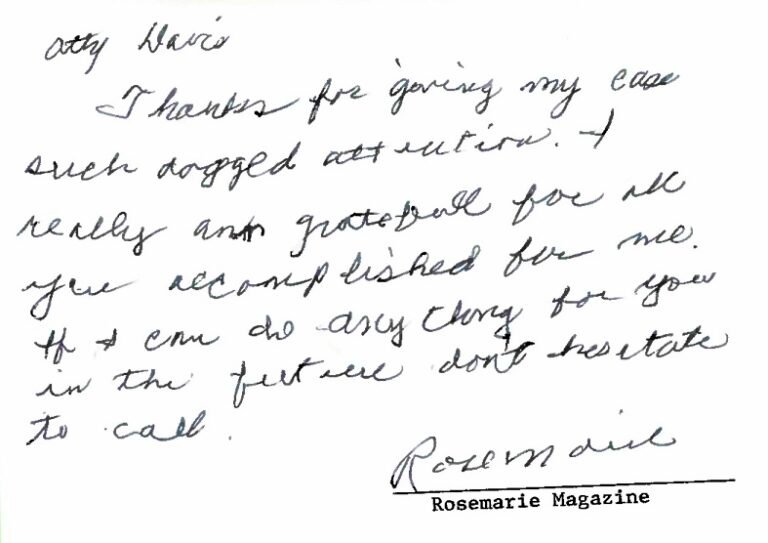 Atty Davis
Thanks for giving my case
such dogged attention. I
really am grateful for all
you accomplished for me.
If I can do any thing for you
in the future don't hesitate
to call.
Rosemarie
Rosemarie Magazine